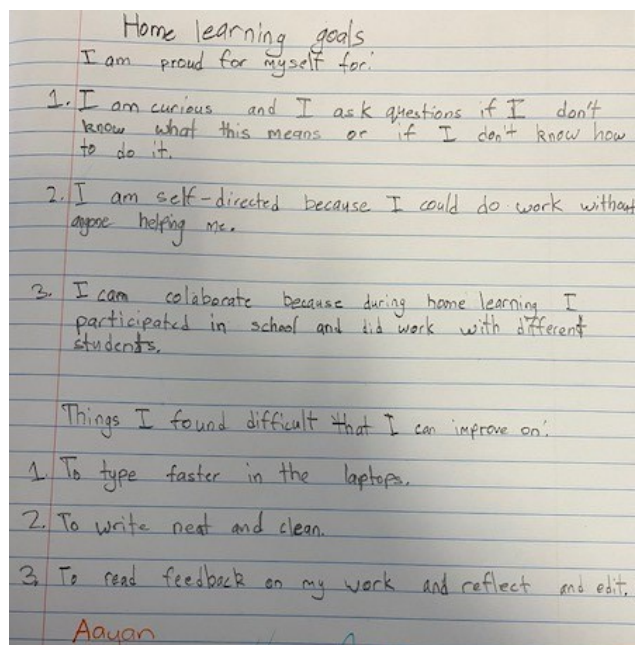 Home learning goals
I am proud for myself for:
1. I am curious and I ask questions if I don't
know what this means or if I don't know how
to do it.
2. I am self-directed because I could do work without
anyone helping me.
3. I can colaborate because during home learning I
participated in school and did work with different
students.
Things I found difficult that I can improve on:
1. To type faster in the laptops.
2. To write neat and clean.
3. To read feedback on my work and reflect and edit.
Aayan